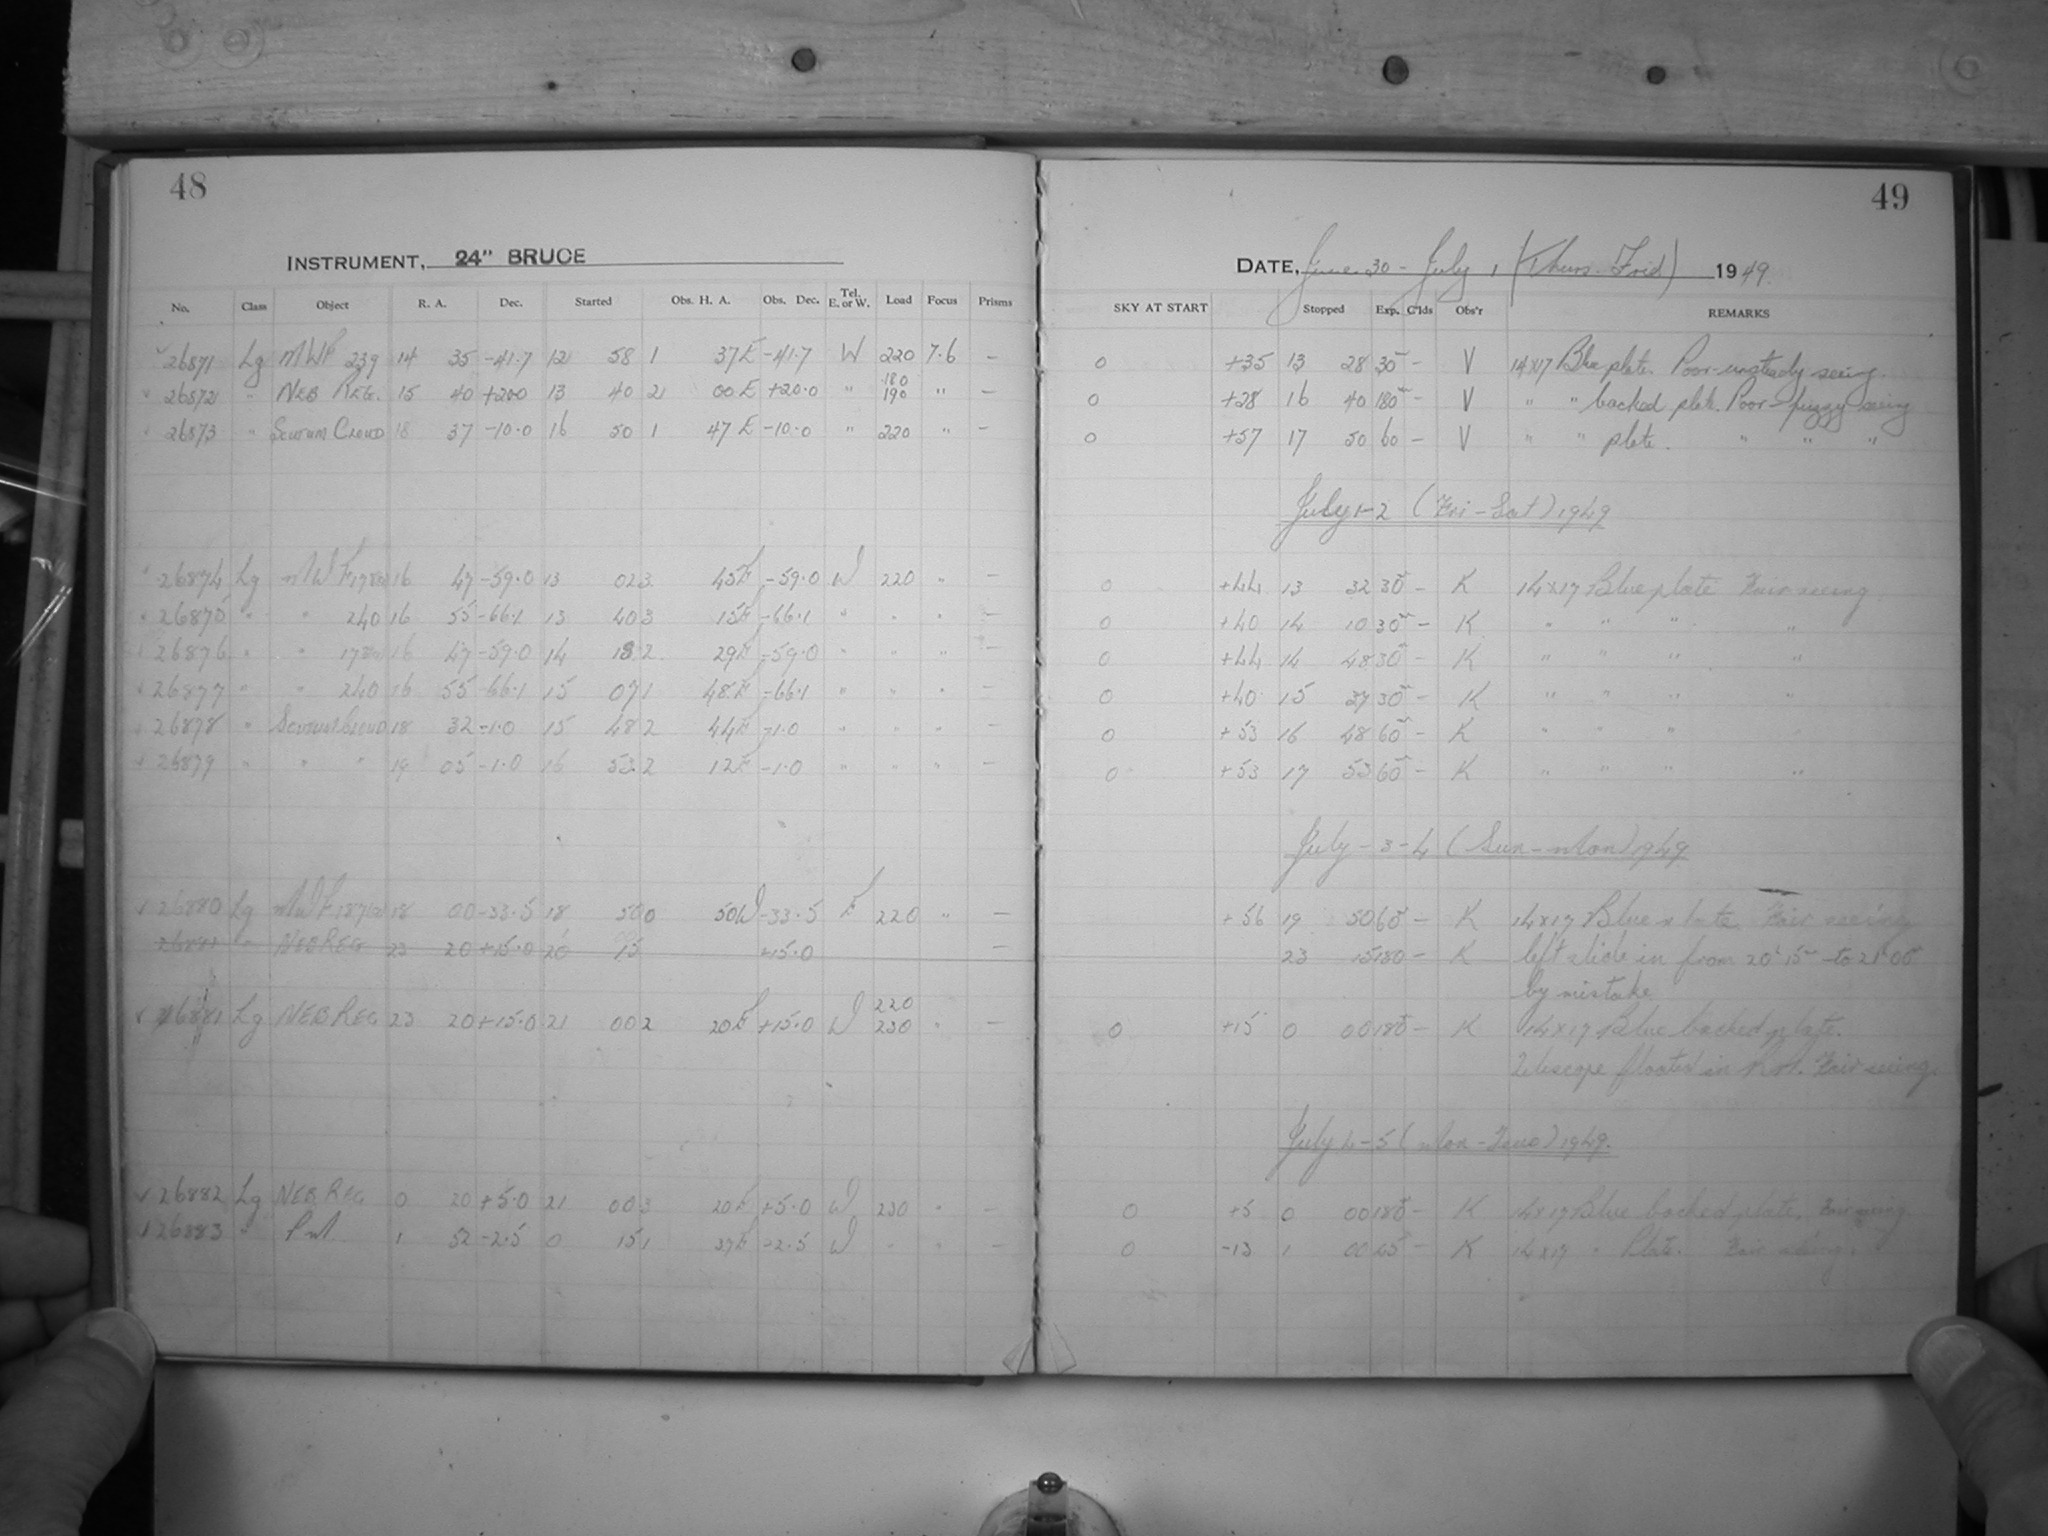 48
INSTRUMENT, 24" BRUCE
No. Class Object R. A. Dec. Started Obs. H. A. Obs. Dec. Tel. E. or W. Load Focus Prisms
26871 Lg MWF 239 14 35 -41.7 12 58 1 37E -41.7 W 220 7.6 –
26872 " NEB REG. 15 40 +20.0 13 40 2 00E +20.0 " 180 190 " –
26873 " SCUTUM CLOUD 18 37 -10.0 16 50 1 47E -10.0 " 220 " –
26874 Lg MWF 16 47 -59.0 13 02 3 45E -59.0 W 220 " –
26875 " " 240 16 55 -66.1 13 40 3 15E -66.1 " " " –
26876 " " 16 47 -59.0 14 18 2 29E -59.0 " " " –
26877 " " 240 16 55 -66.1 15 07 1 48E -66.1 " " " –
26878 " Scutum Cloud 18 32 -1.0 15 48 2 44E -1.0 " " "
26879 " " " 19 05 -1.0 16 53 2 12E -1.0 " " " –
26880 Lg MWF 18 00 -33.5 18 50 0 50W -33.5 E 220 " –
26881 " NEB REG 23 20 +15.0 20 15 +15.0 –
26881 Lg NEB REG 23 20 +15.0 21 00 2 20E +15.0 W 220 230 " –
26882 Lg NEB REG 0 20 +5.0 21 00 3 20E +5.0 W 230 " –
26883 " 1 52 -2.5 0 15 1 37E -2.5 W " " –
49
DATE, June 30 - July 1 (Thurs. Frid) 1949.
SKY AT START Stopped Exp. C'lds Obs'r REMARKS
0 +35 13 28 30m – V 14x17 Blue plate. Poor-unsteady seeing.
0 +28 16 40 180m – V " " backed plate. Poor-fuzzy seeing
0 +57 17 50 60 – V " " plate. " " "
July 1-2 (Fri-Sat) 1949
0 +44 13 32 30m – K 14x17 Blue plate Fair seeing.
0 +40 14 10 30m – K " " " "
0 +44 14 48 30m – K " " " "
0 +40 15 37 30m – K " " " "
0 +53 16 48 60m – K " " " "
0 +53 17 53 60m – K " " " "
July - 3-4 (Sun-Mon) 1949
+56 19 50 60m – K 14x17 Blue plate Fair seeing
23 15 180 – K left slide in from 20h 15m to 21h 00m
by mistake
0 +15 0 00 180m – K 14x17 Blue backed plate.
Telescope floated in R.A. Fair seeing.
July 4-5 (Mon-Tues) 1949.
0 +5 0 00 180m – K 14x17 Blue backed plate. Fair seeing
0 -13 1 00 45m – K 14x17 " Plate. Fair seeing.